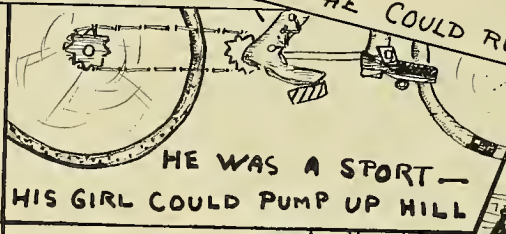 HE COULD
HE WAS A SPORT—
HIS GIRL COULD PUMP UP HILL